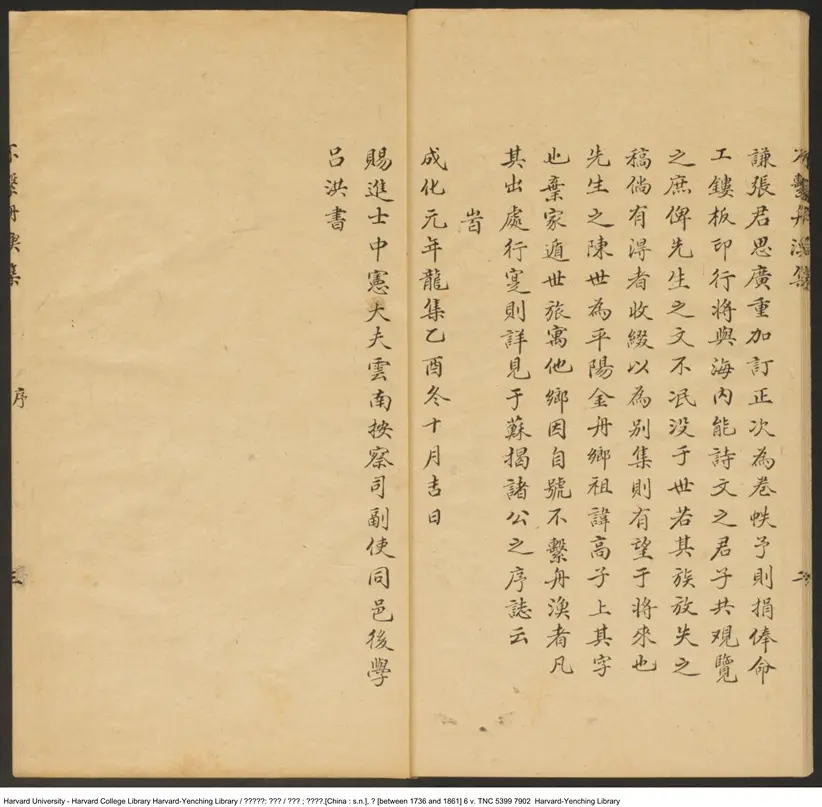 不繫舟漁集
二
謙張君思廣重加訂正次為卷帙予則捐俸命
工鏤板印行将與海内能詩文之君子共观覽
之庶俾先生之文不泯没于世若其族放失之
稿倘有得者收綴以為別集則有望于将來也
先生之陳世為平陽金舟鄉祖諱高子上其字
也棄家遁世旅寓他鄉因自號不繫舟漁者凡
其出處行寔則詳見于蘇揭諸公之序誌云
旹
成化元年龍集乙酉冬十月吉日
賜進士中憲大夫雲南按察司副使同邑後學
吕洪書
不繫舟漁集
序
三
Harvard University - Harvard College Library Harvard-Yenching Library / ?????: ??? / ??? ; ????.[China : s.n.], ? [between 1736 and 1861] 6 v. TNC 5399 7902 Harvard-Yenching Library